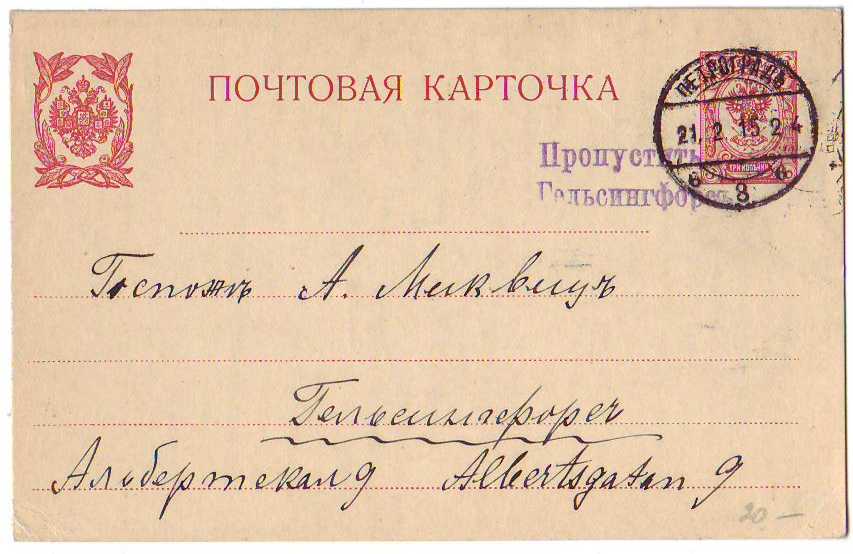 ПОЧТОВАЯ КАРТОЧКА
ПЕТРОГРАДЪ
21. 2. 15. 2
8.
ТРИ КОПѢЙКИ
Пропустить
Гельсингфорсъ
Госпожѣ А.
Гельсингфорсъ
Албертская 9 Albertsgatan 9
20 —